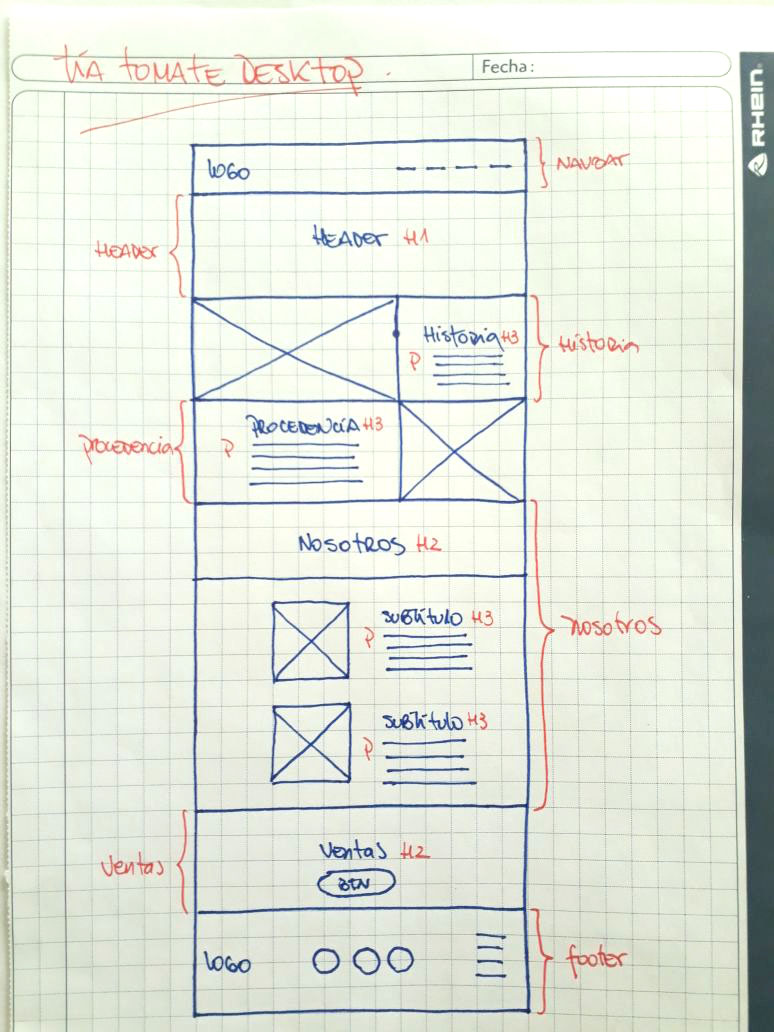 TÍA TOMATE DESKTOP.
Fecha:
RHEIN
LOGO
NAVBAR
HEADER
HEADER H1
Historia H3
P
Historia
PROCEDENCIA H3
P
procedencia
NOSOTROS H2
SUBTÍTULO H3
P
Nosotros
SUBTÍTULO H3
P
Ventas H2
BTN
Ventas
LOGO
footer